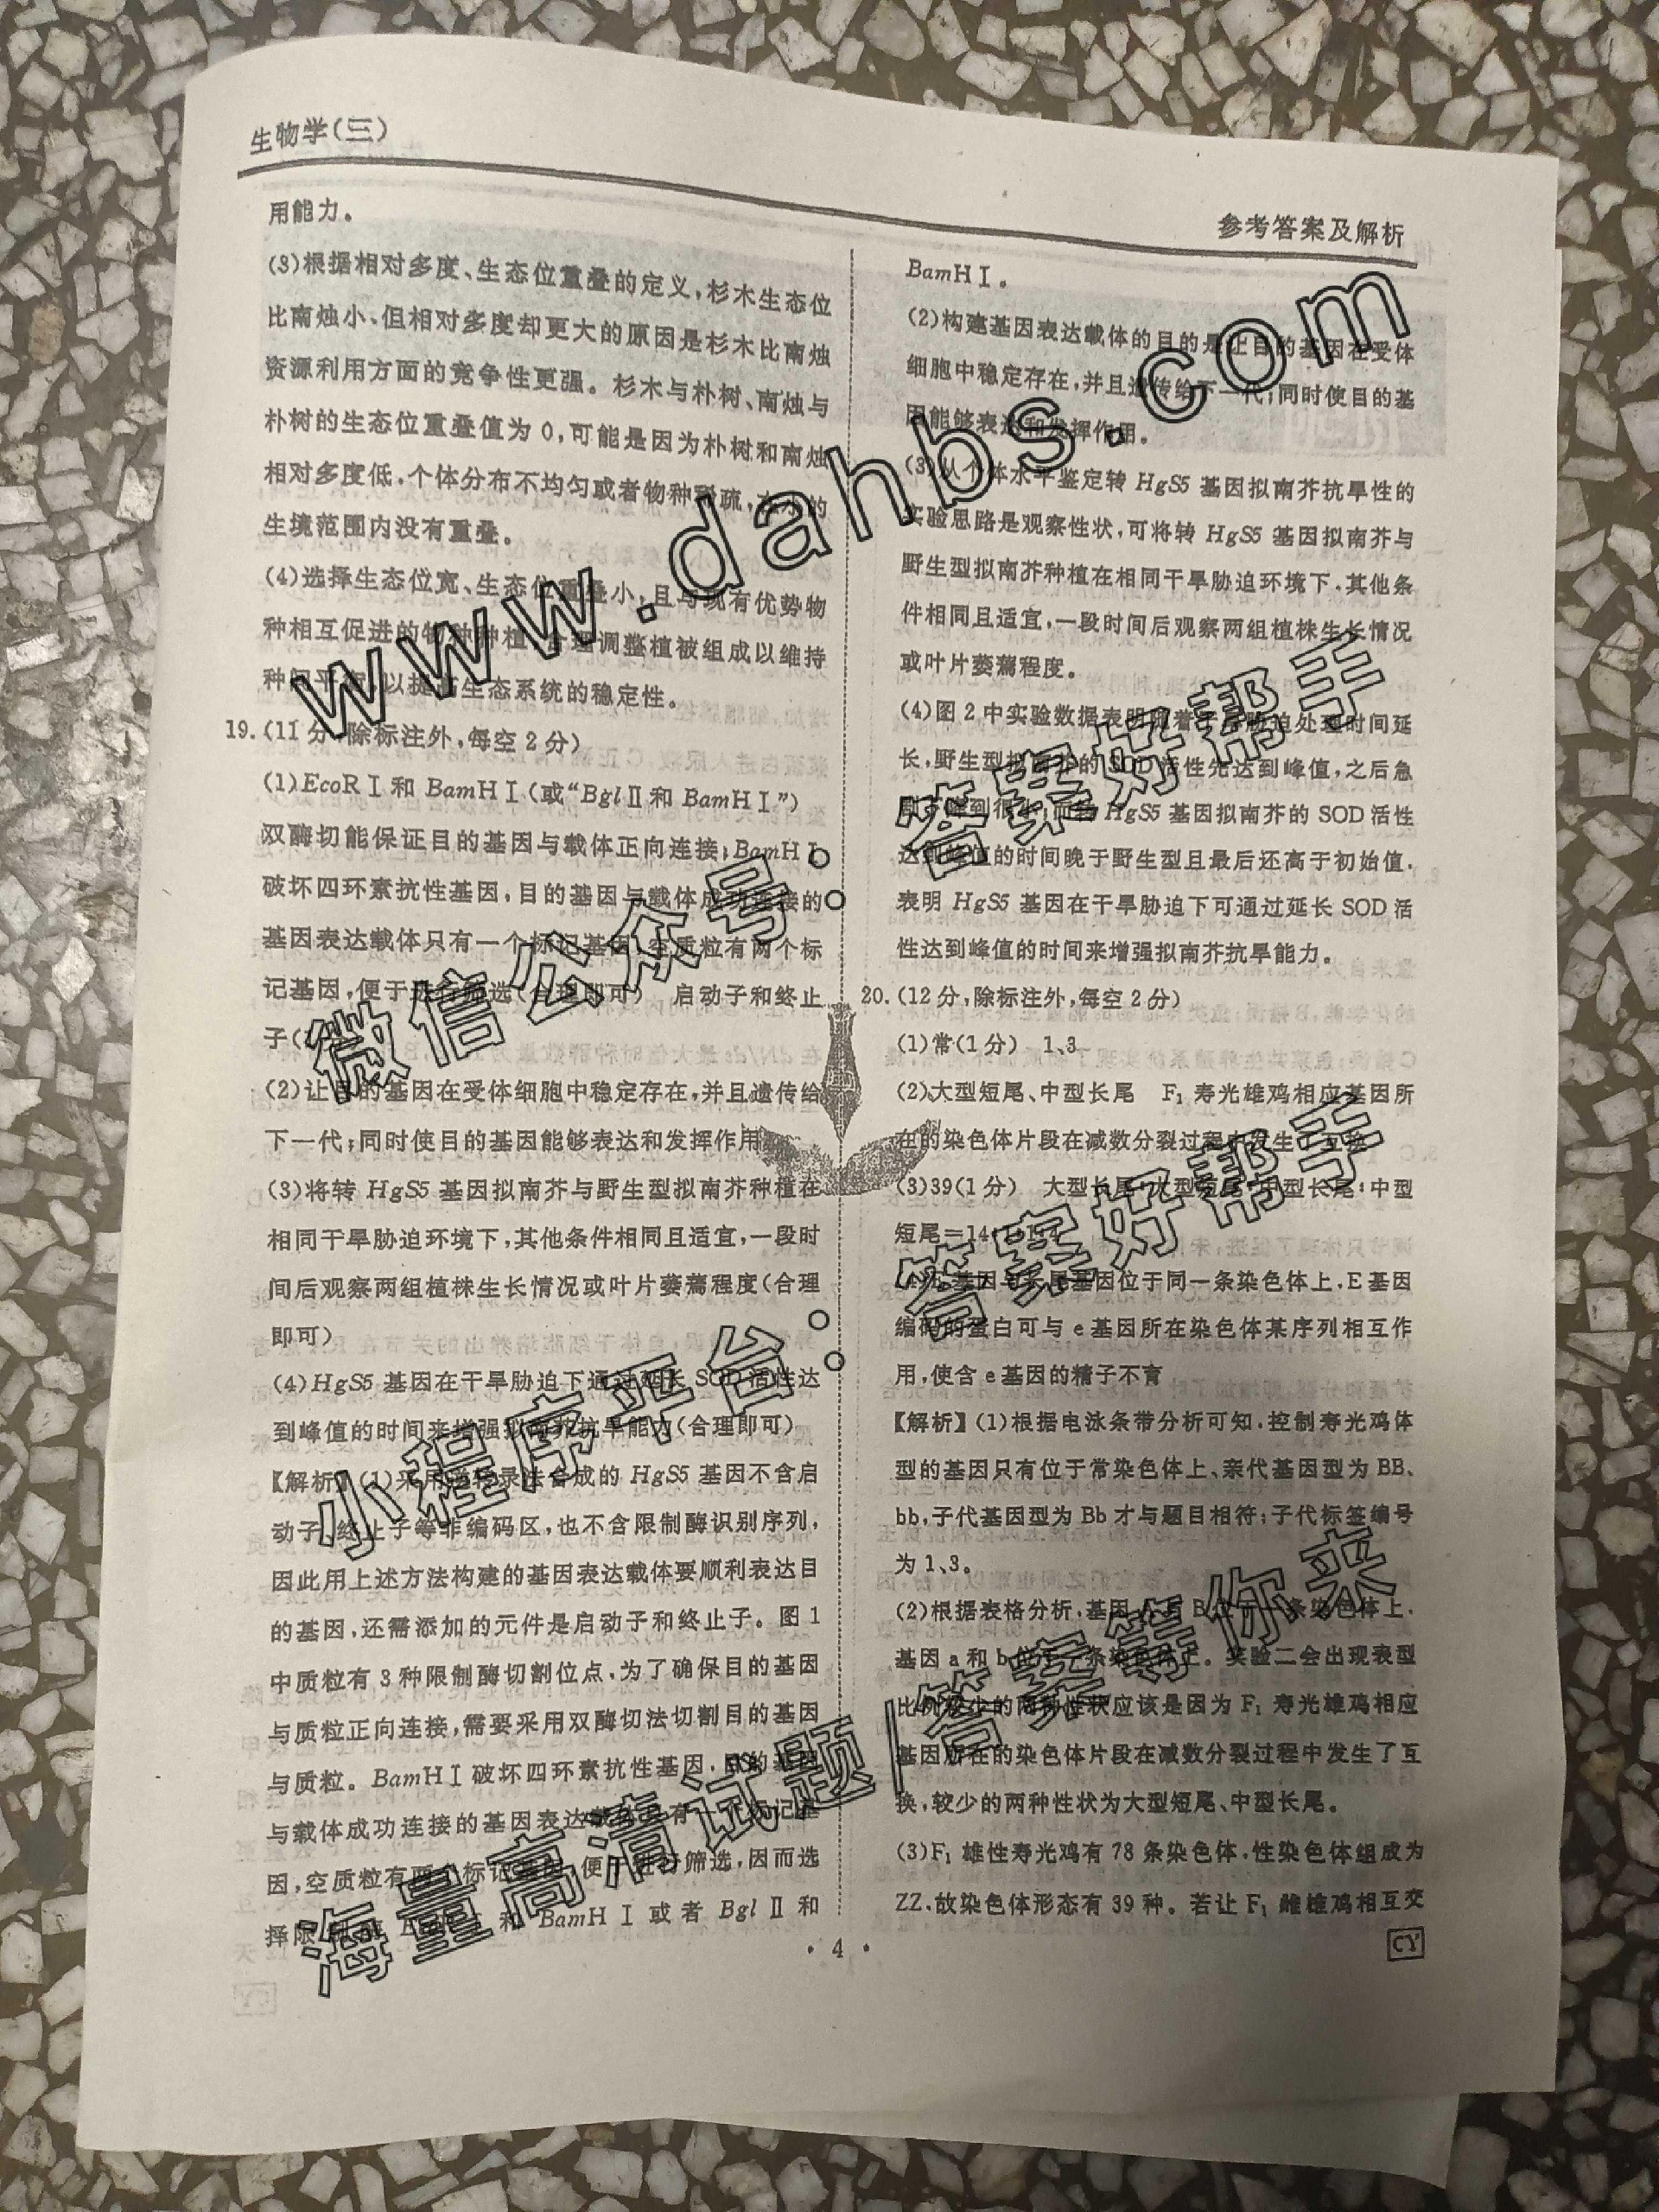 生物学(三)
参考答案及解析
用能力。
(3)根据相对多度、生态位重叠的定义,杉木生态位
比南烛小,但相对多度却更大的原因是杉木比南烛
资源利用方面的竞争性更强。杉木与朴树、南烛与
朴树的生态位重叠值为 0,可能是因为朴树和南烛
相对多度低,个体分布不均匀或者物种稀疏,在小的
生境范围内没有重叠。
(4)选择生态位宽、生态位重叠小,且与现有优势物
种相互促进的物种种植,合理调整植被组成以维持
种间平衡,以提高生态系统的稳定性。
19.(11 分,除标注外,每空 2 分)
(1)EcoRⅠ和 BamHⅠ(或“BglⅡ和 BamHⅠ”)
双酶切能保证目的基因与载体正向连接;BamHⅠ
破坏四环素抗性基因,目的基因与载体成功连接的
基因表达载体只有一个标记基因,空质粒有两个标
记基因,便于进行筛选(合理即可) 启动子和终止
子(
(2)让目的基因在受体细胞中稳定存在,并且遗传给
下一代;同时使目的基因能够表达和发挥作用
(3)将转 HgS5 基因拟南芥与野生型拟南芥种植在
相同干旱胁迫环境下,其他条件相同且适宜,一段时
间后观察两组植株生长情况或叶片萎蔫程度(合理
即可)
(4)HgS5 基因在干旱胁迫下通过延长 SOD 活性达
到峰值的时间来增强拟南芥抗旱能力(合理即可)
【解析】(1)采用逆转录法合成的 HgS5 基因不含启
动子、终止子等非编码区,也不含限制酶识别序列,
因此用上述方法构建的基因表达载体要顺利表达目
的基因,还需添加的元件是启动子和终止子。图 1
中质粒有 3 种限制酶切割位点,为了确保目的基因
与质粒正向连接,需要采用双酶切法切割目的基因
与质粒。BamHⅠ破坏四环素抗性基因,目的基因
与载体成功连接的基因表达载体只有一个标记基
因,空质粒有两个标记基因,便于进行筛选,因而选
择限制酶 EcoRⅠ和 BamHⅠ或者 BglⅡ和
BamHⅠ。
(2)构建基因表达载体的目的是让目的基因在受体
细胞中稳定存在,并且遗传给下一代;同时使目的基
因能够表达和发挥作用。
(3)从个体水平鉴定转 HgS5 基因拟南芥抗旱性的
实验思路是观察性状,可将转 HgS5 基因拟南芥与
野生型拟南芥种植在相同干旱胁迫环境下,其他条
件相同且适宜,一段时间后观察两组植株生长情况
或叶片萎蔫程度。
(4)图 2 中实验数据表明随着干旱胁迫处理时间延
长,野生型拟南芥的 SOD 活性先达到峰值,之后急
剧下降到很小;而转 HgS5 基因拟南芥的 SOD 活性
达到峰值的时间晚于野生型且最后还高于初始值,
表明 HgS5 基因在干旱胁迫下可通过延长 SOD 活
性达到峰值的时间来增强拟南芥抗旱能力。
20.(12 分,除标注外,每空 2 分)
(1)常(1 分) 1、3
(2)大型短尾、中型长尾 F₁ 寿光雄鸡相应基因所
在的染色体片段在减数分裂过程中发生了互换
(3)39(1 分) 大型长尾:大型短尾:中型长尾:中型
短尾=14:1:1:4
基因与长尾基因位于同一条染色体上,E 基因
编码的蛋白可与 e 基因所在染色体某序列相互作
用,使含 e 基因的精子不育
【解析】(1)根据电泳条带分析可知,控制寿光鸡体
型的基因只有位于常染色体上、亲代基因型为 BB、
bb,子代基因型为 Bb 才与题目相符;子代标签编号
为 1、3。
(2)根据表格分析,基因 A 和 B 位于一条染色体上,
基因 a 和 b 位于一条染色体上。实验二会出现表型
比例较少的两种性状应该是因为 F₁ 寿光雄鸡相应
基因所在的染色体片段在减数分裂过程中发生了互
换,较少的两种性状为大型短尾、中型长尾。
(3)F₁ 雄性寿光鸡有 78 条染色体,性染色体组成为
ZZ,故染色体形态有 39 种。若让 F₁ 雌雄鸡相互交
· 4 ·
CY
www.dahbs.com
微信公众号:答案好帮手
小程序平台:答案好帮手
海量高清试题/答案等你来